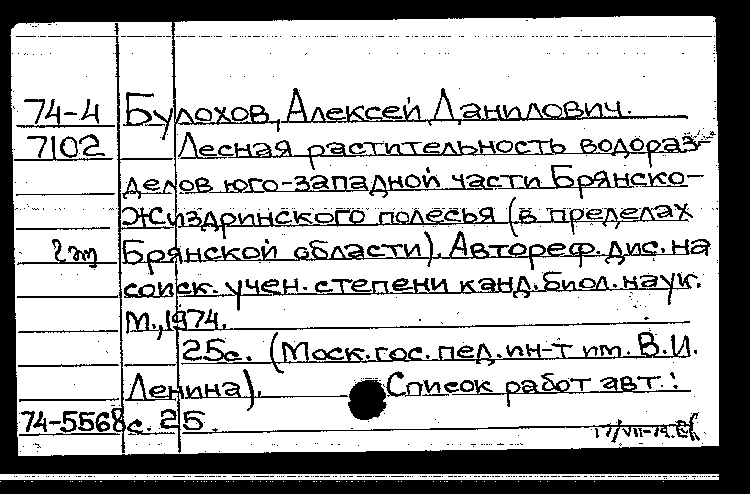 74-4 Булохов, Алексей Данилович.
7102 Лесная растительность водораз-
делов юго-западной части Брянско-
Жиздринского полесья (в пределах
2 эк Брянской области). Автореф. дис. на
соиск. учен. степени канд. биол. наук.
М., 1974.
25с. (Моск. гос. пед. ин-т им. В.И.
Ленина). Список работ авт.:
74-5568 с. 25.
17/VII-74.